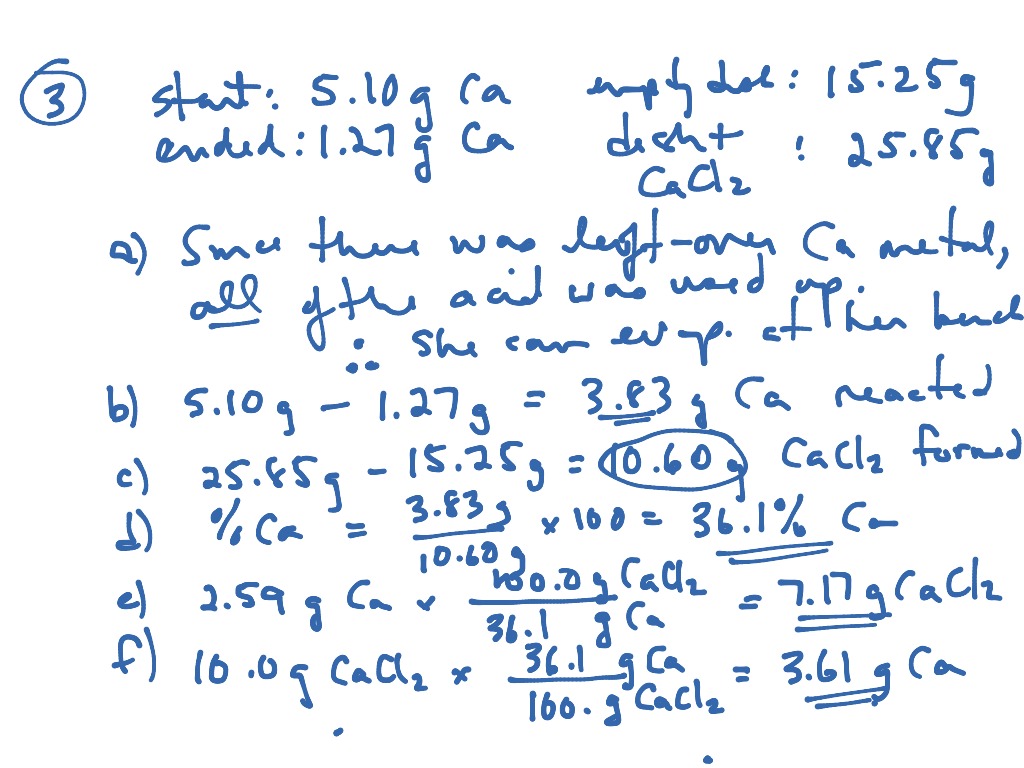 3 start: 5.10 g Ca empty dish: 15.25 g
ended: 1.27 g Ca dish + CaCl2 : 25.85 g
a) Since there was left-over Ca metal,
all of the acid was used up.
∴ she can evap. at her bench
b) 5.10 g - 1.27 g = 3.83 g Ca reacted
c) 25.85 g - 15.25 g = 10.60 g CaCl2 formed
d) % Ca = 3.83 g / 10.60 g x 100 = 36.1% Ca
e) 2.59 g Ca x 100.0 g CaCl2 / 36.1 g Ca = 7.17 g CaCl2
f) 10.0 g CaCl2 x 36.1 g Ca / 100. g CaCl2 = 3.61 g Ca